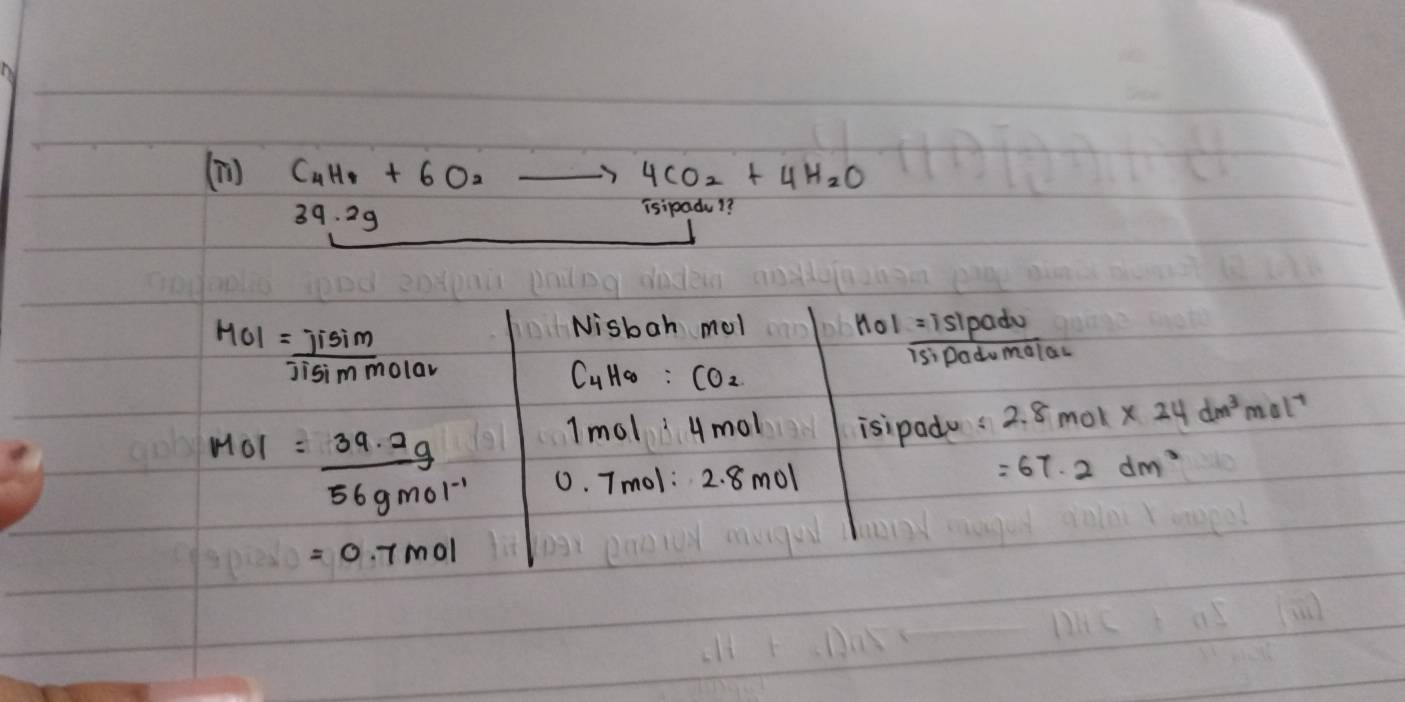 (ii) C₄H₈ + 6O₂ ⟶ 4CO₂ + 4H₂O
39.2g isipadu??
Mol = jisim / jisim molar
Mol = 39.2g / 56gmol⁻¹
= 0.7mol
Nisbah mol
C₄H₈ : CO₂
1mol : 4mol
0.7mol : 2.8mol
Mol = isipadu / isipadu molar
isipadu = 2.8mol × 24 dm³mol⁻¹
= 67.2 dm³